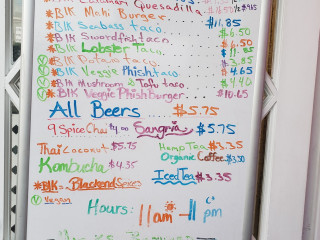 Quesadilla
*Blk Mahi Burger. $11.85
*Blk Seabass taco. $6.50
*Blk Swordfish taco. $6.50
*Blk Lobster Taco. $11.85
*Blk Potato taco $3.85
*Blk Veggie Phish taco. 4.65
*Blk Mushroom & Tofu taco. 4.40
*Blk Veggie Phish burger. $10.65
All Beers.... $5.75
9 Spice Chai $4.00 Sangria $5.75
Thai Coconut $5.75 Hemp Tea $3.35
Kombucha $4.35 Organic Coffee $3.50
*Blk = Blackend Spices Iced Tea $3.35
V Vegan
Hours: 11am - 11 pm